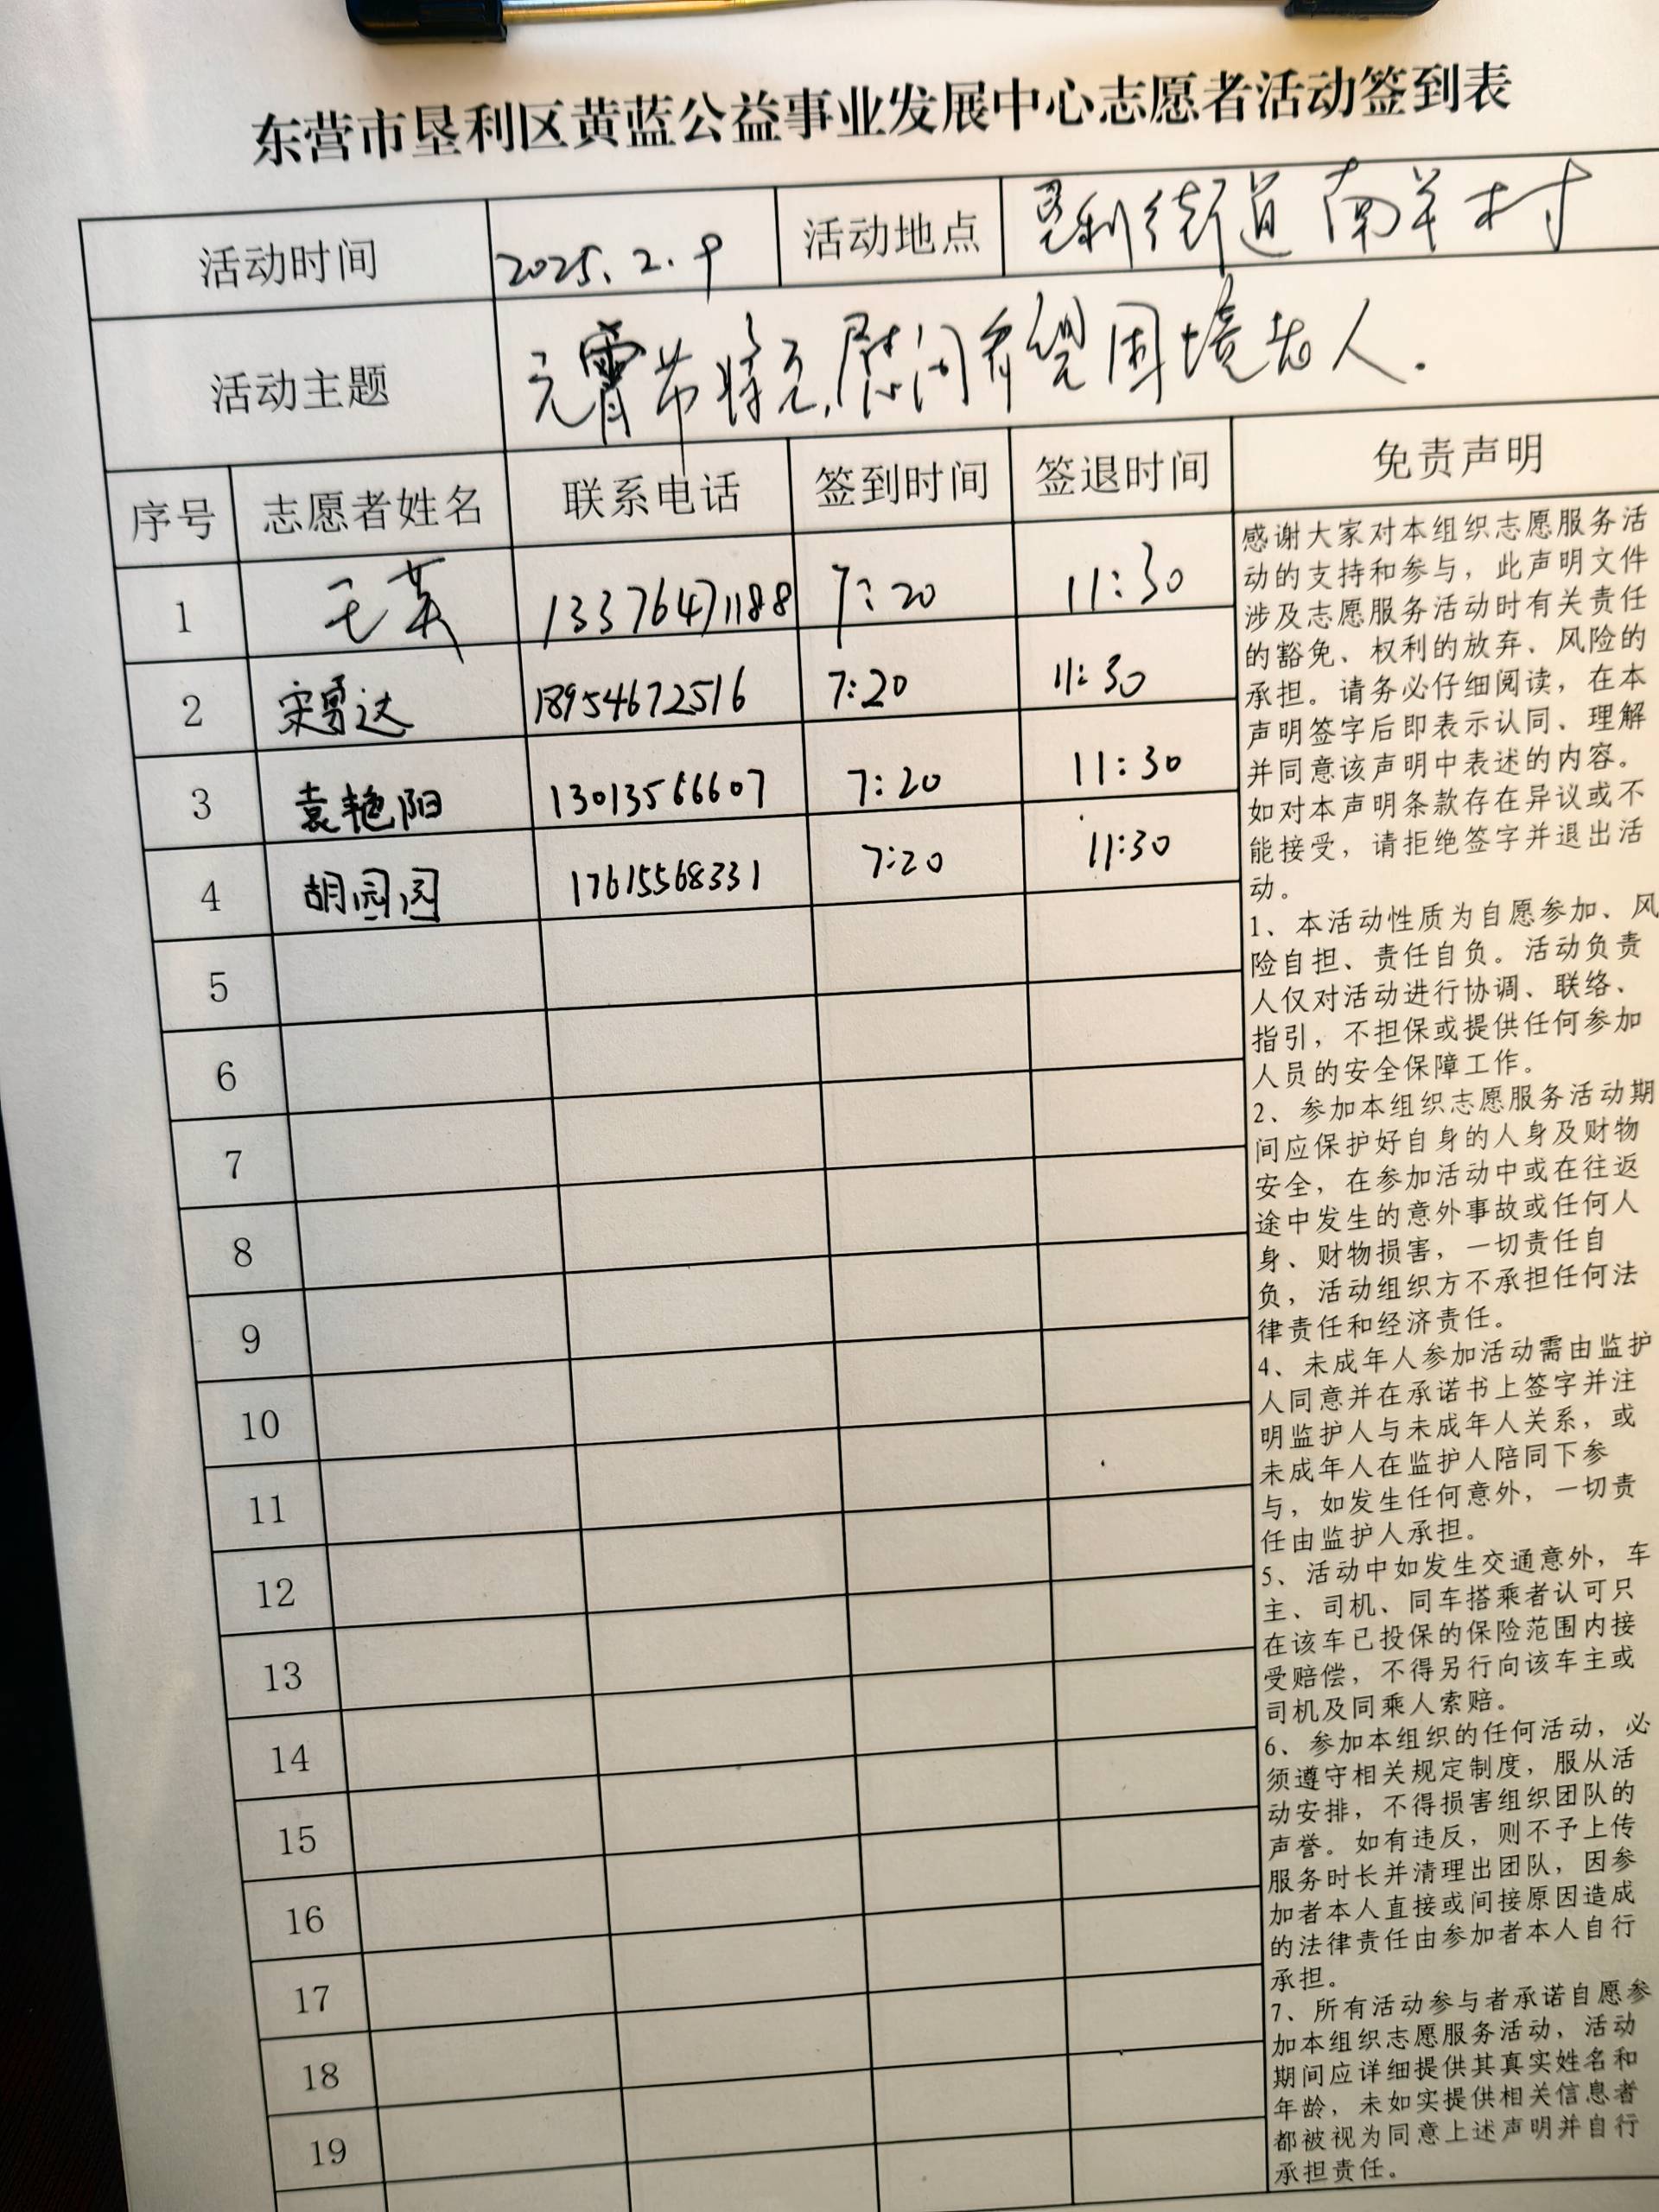 东营市垦利区黄蓝公益事业发展中心志愿者活动签到表
活动时间 2025.2.9 活动地点 垦利街道南羊村
活动主题 元霄节将至,慰问看望困境老人.
序号 志愿者姓名 联系电话 签到时间 签退时间 免责声明
1 王英 13376471188 7:20 11:30
2 宋勇达 18954672516 7:20 11:30
3 袁艳阳 13013566607 7:20 11:30
4 胡园园 17615568331 7:20 11:30
5
6
7
8
9
10
11
12
13
14
15
16
17
18
19
感谢大家对本组织志愿服务活
动的支持和参与，此声明文件
涉及志愿服务活动时有关责任
的豁免、权利的放弃、风险的
承担。请务必仔细阅读，在本
声明签字后即表示认同、理解
并同意该声明中表述的内容。
如对本声明条款存在异议或不
能接受，请拒绝签字并退出活
动。
1、本活动性质为自愿参加、风
险自担、责任自负。活动负责
人仅对活动进行协调、联络、
指引，不担保或提供任何参加
人员的安全保障工作。
2、参加本组织志愿服务活动期
间应保护好自身的人身及财物
安全，在参加活动中或在往返
途中发生的意外事故或任何人
身、财物损害，一切责任自
负，活动组织方不承担任何法
律责任和经济责任。
4、未成年人参加活动需由监护
人同意并在承诺书上签字并注
明监护人与未成年人关系，或
未成年人在监护人陪同下参
与，如发生任何意外，一切责
任由监护人承担。
5、活动中如发生交通意外，车
主、司机、同车搭乘者认可只
在该车已投保的保险范围内接
受赔偿，不得另行向该车主或
司机及同乘人索赔。
6、参加本组织的任何活动，必
须遵守相关规定制度，服从活
动安排，不得损害组织团队的
声誉。如有违反，则不予上传
服务时长并清理出团队，因参
加者本人直接或间接原因造成
的法律责任由参加者本人自行
承担。
7、所有活动参与者承诺自愿参
加本组织志愿服务活动，活动
期间应详细提供其真实姓名和
年龄，未如实提供相关信息者
都被视为同意上述声明并自行
承担责任。